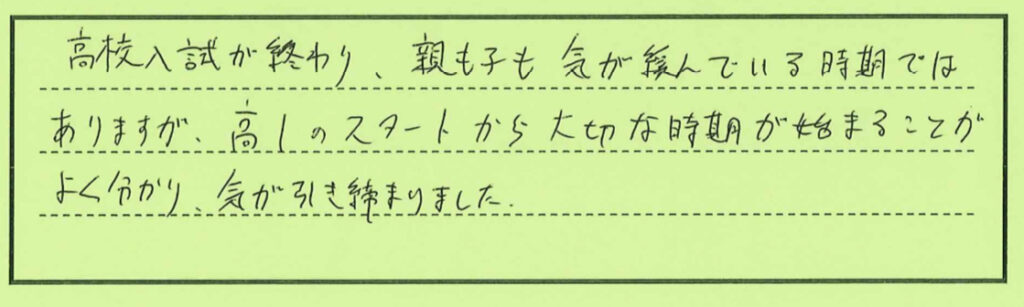 高校入試が終わり、親も子も気が緩んでいる時期では
ありますが、高1のスタートから大切な時期が始まることが
よく分かり、気が引き締まりました.